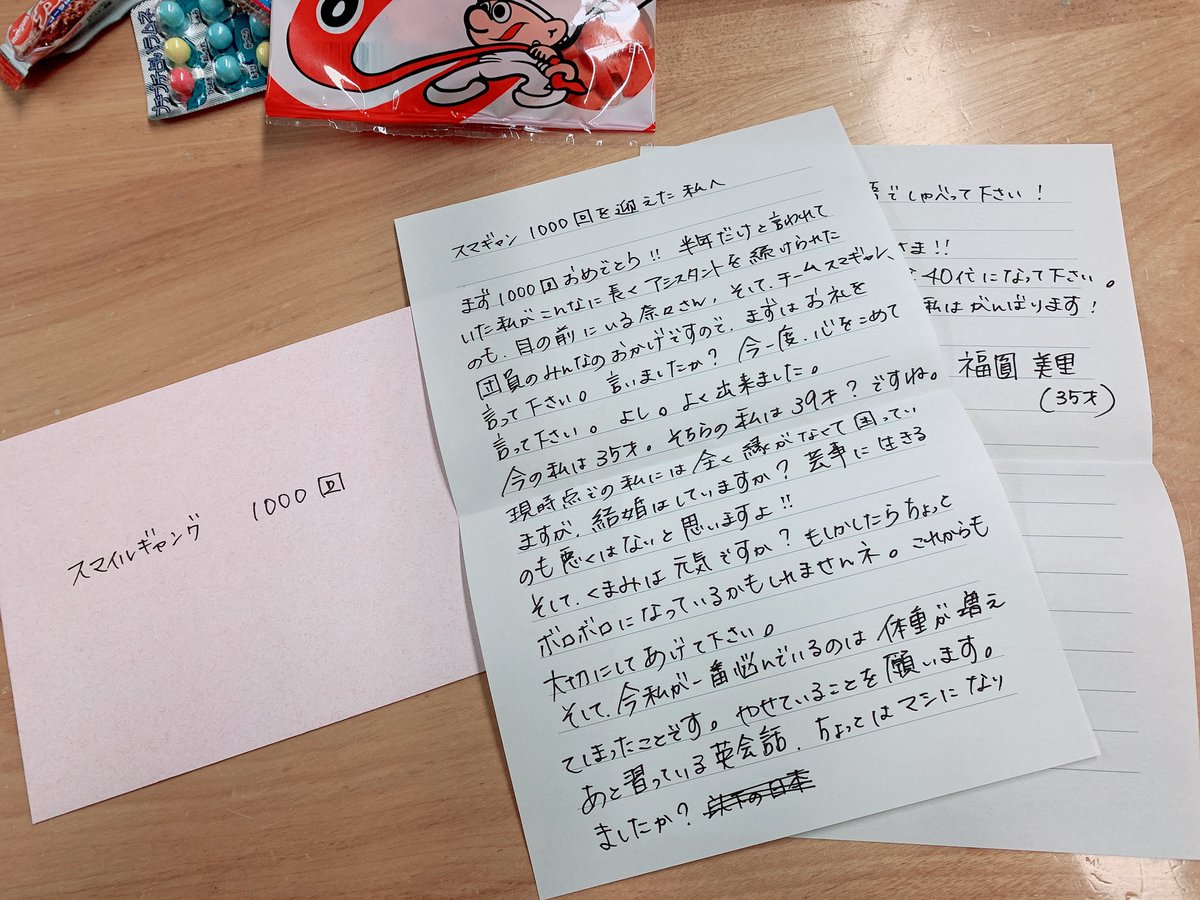 スマギャン 1000回を迎えた私へ
まず1000回おめでとう!! 半年だけと言われて
いた私がこんなに長くアシスタントを続けられた
のも、目の前にいる奈々さん、そして、チームスマギャン、
団員のみんなのおかげですので、まずはお礼を
言って下さい。言いましたか? 今一度、心をこめて
言って下さい。よし。よく出来ました。
今の私は35才。そちらの私は39才?ですね。
現時点での私には全く縁がなくて困ってい
ますが、結婚はしていますか? 芸事に生きる
のも悪くはないと思いますよ!!
そして、くまみは元気ですか? もしかしたらちょっと
ボロボロになっているかもしれませんネ。これからも
大切にしてあげて下さい。
そして、今私が一番悩んでいるのは体重が増え
てしまったことです。やせていることを願います。
あと習っている英会話、ちょっとはマシになり
ましたか?
でしゃべって下さい!
さま!!
40代になって下さい。
私はがんばります!
福圓 美里
(35才)
スマイルギャング 1000回